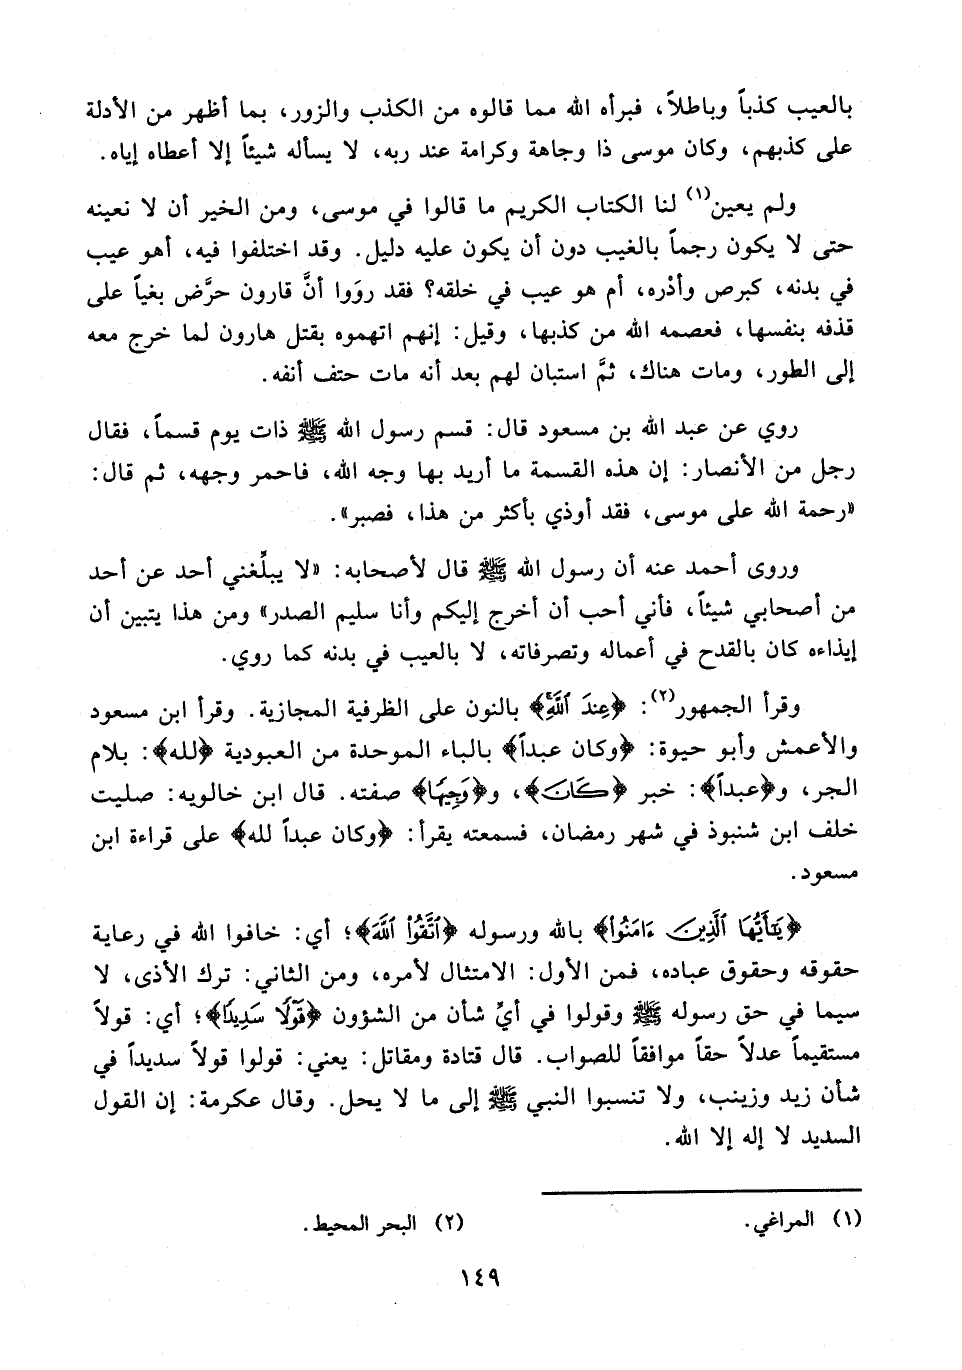 بالعيب كذباً وباطلاً، فبرأه الله مما قالوه من الكذب والزور، بما أظهر من الأدلة
على كذبهم، وكان موسى ذا وجاهة وكرامة عند ربه، لا يسأله شيئاً إلا أعطاه إياه.
ولم يعين(١) لنا الكتاب الكريم ما قالوا في موسى، ومن الخير أن لا نعينه
حتى لا يكون رجماً بالغيب دون أن يكون عليه دليل. وقد اختلفوا فيه، أهو عيب
في بدنه، كبرص وأذْره، أم هو عيب في خلقه؟ فقد روَوا أنَّ قارون حرَّض بغياً على
قذفه بنفسها، فعصمه الله من كذبها، وقيل: إنهم اتهموه بقتل هارون لما خرج معه
إلى الطور، ومات هناك، ثمَّ استبان لهم بعد أنه مات حتف أنفه.
روي عن عبد الله بن مسعود قال: قسم رسول الله ﷺ ذات يوم قسماً، فقال
رجل من الأنصار: إن هذه القسمة ما أريد بها وجه الله، فاحمر وجهه، ثم قال:
«رحمة الله على موسى، فقد أوذي بأكثر من هذا، فصبر».
وروى أحمد عنه أن رسول الله ﷺ قال لأصحابه: «لا يبلِّغني أحد عن أحد
من أصحابي شيئاً، فأني أحب أن أخرج إليكم وأنا سليم الصدر» ومن هذا يتبين أن
إيذاءه كان بالقدح في أعماله وتصرفاته، لا بالعيب في بدنه كما روي.
وقرأ الجمهور(٢): ﴿عِندَ ٱللَّهِ﴾ بالنون على الظرفية المجازية. وقرأ ابن مسعود
والأعمش وأبو حيوة: ﴿وكان عبداً﴾ بالباء الموحدة من العبودية ﴿لله﴾: بلام
الجر، و﴿عبداً﴾: خبر ﴿كَانَ﴾، و﴿وَجِيهًا﴾ صفته. قال ابن خالويه: صليت
خلف ابن شنبوذ في شهر رمضان، فسمعته يقرأ: ﴿وكان عبداً لله﴾ على قراءة ابن
مسعود.
﴿يَٰٓأَيُّهَا ٱلَّذِينَ ءَامَنُوا۟﴾ بالله ورسوله ﴿ٱتَّقُوا۟ ٱللَّهَ﴾؛ أي: خافوا الله في رعاية
حقوقه وحقوق عباده، فمن الأول: الامتثال لأمره، ومن الثاني: ترك الأذى، لا
سيما في حق رسوله ﷺ وقولوا في أيِّ شأن من الشؤون ﴿قَوْلًا سَدِيدًا﴾؛ أي: قولاً
مستقيماً عدلاً حقاً موافقاً للصواب. قال قتادة ومقاتل: يعني: قولوا قولاً سديداً في
شأن زيد وزينب، ولا تنسبوا النبي ﷺ إلى ما لا يحل. وقال عكرمة: إن القول
السديد لا إله إلا الله.
(١) المراغي. (٢) البحر المحيط.
١٤٩